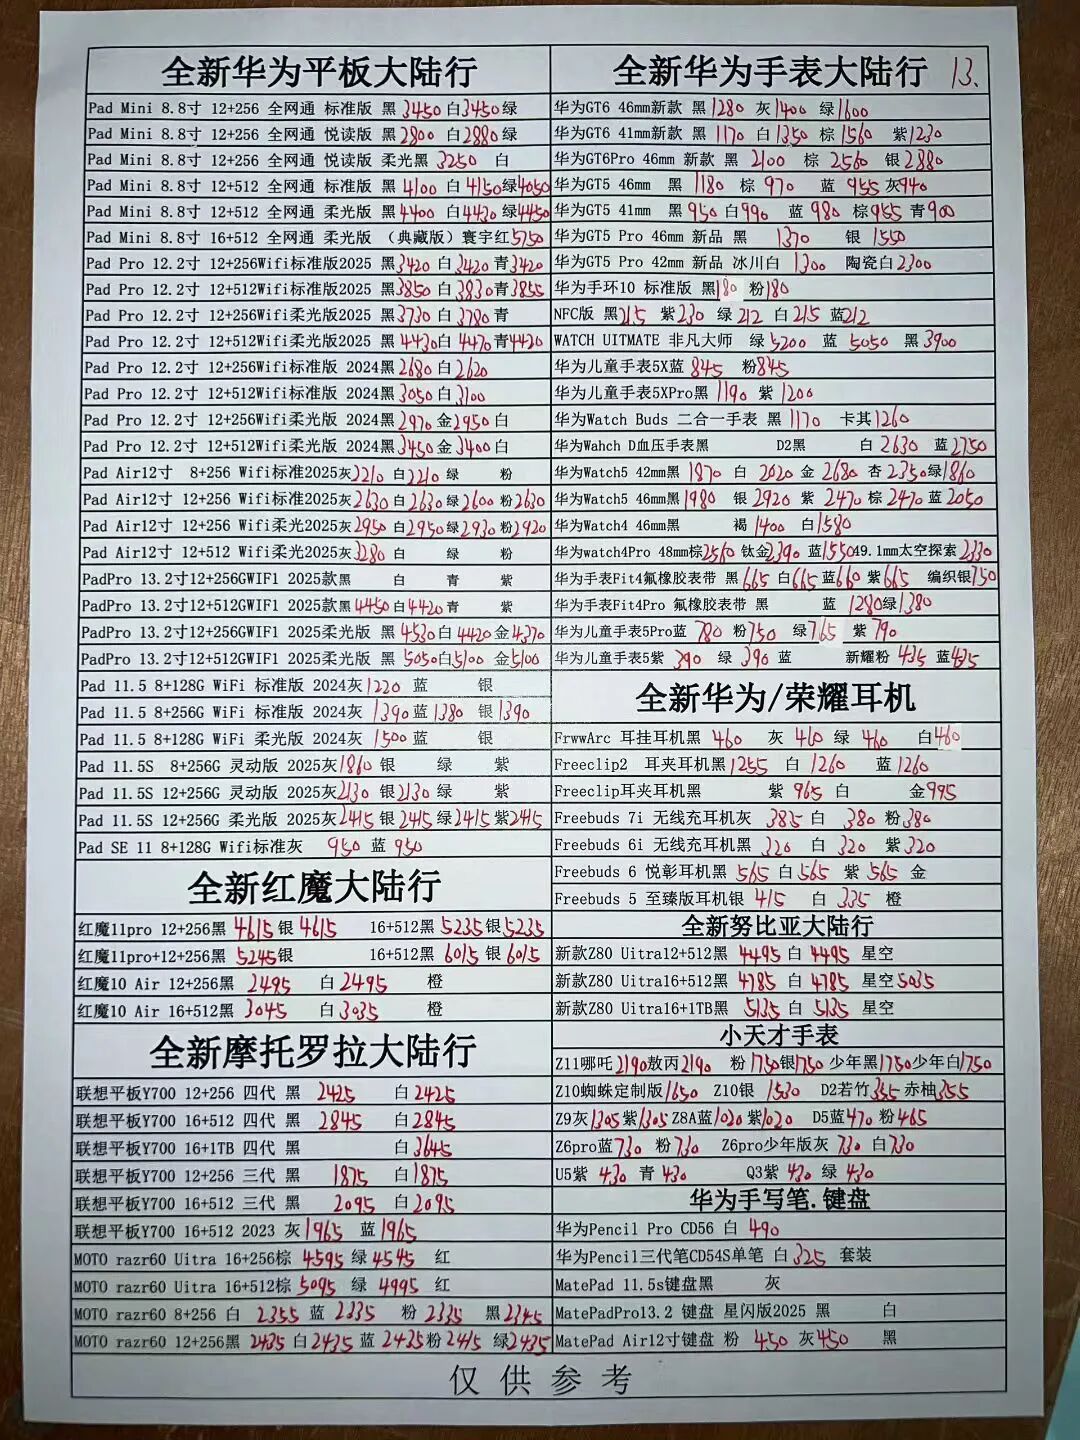 全新华为平板大陆行
Pad Mini 8.8寸 12+256 全网通 标准版 黑 3450 白3450 绿
Pad Mini 8.8寸 12+256 全网通 悦读版 黑 2800 白2880 绿
Pad Mini 8.8寸 12+256 全网通 悦读版 柔光黑 3250 白
Pad Mini 8.8寸 12+512 全网通 标准版 黑 4100 白 4150 绿4050
Pad Mini 8.8寸 12+512 全网通 柔光版 黑4400 白4420 绿4450
Pad Mini 8.8寸 16+512 全网通 柔光版 （典藏版）寰宇红5750
Pad Pro 12.2寸 12+256Wifi标准版2025 黑3420 白3420 青3420
Pad Pro 12.2寸 12+512Wifi标准版2025 黑3850 白3830 青3855
Pad Pro 12.2寸 12+256Wifi柔光版2025 黑3730 白3780 青
Pad Pro 12.2寸 12+512Wifi柔光版2025 黑4430 白4470 青4420
Pad Pro 12.2寸 12+256Wifi标准版 2024黑2680 白2620
Pad Pro 12.2寸 12+512Wifi标准版 2024黑3050 白3100
Pad Pro 12.2寸 12+256Wifi柔光版 2024黑2970 金2950 白
Pad Pro 12.2寸 12+512Wifi柔光版 2024黑3450 金3400 白
Pad Air12寸 8+256 Wifi标准2025灰2210 白2210 绿 粉
Pad Air12寸 12+256 Wifi标准2025灰2630 白2630 绿2600 粉2630
Pad Air12寸 12+256 Wifi柔光2025灰2950 白2950 绿2930 粉2920
Pad Air12寸 12+512 Wifi柔光2025灰3280 白 绿 粉
PadPro 13.2寸12+256GWIF1 2025款黑 白 青 紫
PadPro 13.2寸12+512GWIF1 2025款黑4450 白4420 青 紫
PadPro 13.2寸12+256GWIF1 2025柔光版 黑4530 白4420 金4370
PadPro 13.2寸12+512GWIF1 2025柔光版 黑5050 白5100 金5100
Pad 11.5 8+128G WiFi 标准版 2024灰1220 蓝 银
Pad 11.5 8+256G WiFi 标准版 2024灰 1390 蓝 1380 银1390
Pad 11.5 8+128G WiFi 柔光版 2024灰 1500 蓝 银
Pad 11.5S 8+256G 灵动版 2025灰1860 银 绿 紫
Pad 11.5S 12+256G 灵动版 2025灰2130 银2130 绿 紫
Pad 11.5S 12+256G 柔光版 2025灰2415 银2415 绿2415 紫2415
Pad SE 11 8+128G Wifi标准灰 950 蓝 950
全新红魔大陆行
红魔11pro 12+256黑 4615 银 4615 16+512黑 5235 银5235
红魔11pro+12+256黑 5245 银 16+512黑 6015 银 6015
红魔10 Air 12+256黑 2495 白 2495 橙
红魔10 Air 16+512黑 3045 白3035 橙
全新摩托罗拉大陆行
联想平板Y700 12+256 四代 黑 2425 白2425
联想平板Y700 16+512 四代 黑 2845 白2845
联想平板Y700 16+1TB 四代 白3645
联想平板Y700 12+256 三代 黑 1875 白1875
联想平板Y700 16+512 三代 黑 2095 白2095
联想平板Y700 16+512 2023 灰1965 蓝1965
MOTO razr60 Uitra 16+256棕 4595 绿 4545 红
MOTO razr60 Uitra 16+512棕 5095 绿 4995 红
MOTO razr60 8+256 白 2355 蓝 2335 粉 2335 黑2345
MOTO razr60 12+256黑 2435 白2435 蓝 2435 粉2415 绿2435
全新华为手表大陆行 13.
华为GT6 46mm新款 黑1280 灰1400 绿1600
华为GT6 41mm新款 黑 1170 白1350 棕1560 紫1230
华为GT6Pro 46mm 新款 黑 2100 棕 2560 银2880
华为GT5 46mm 黑 1180 棕 970 蓝 955 灰940
华为GT5 41mm 黑950 白990 蓝 980 棕955 青900
华为GT5 Pro 46mm 新品 黑 1370 银 1550
华为GT5 Pro 42mm 新品 冰川白 1300 陶瓷白2300
华为手环10 标准版 黑180 粉180
NFC版 黑215 紫230 绿212 白215 蓝212
WATCH UITMATE 非凡大师 绿5200 蓝 5050 黑3900
华为儿童手表5X蓝 845 粉845
华为儿童手表5XPro黑 1190 紫 1200
华为Watch Buds 二合一手表 黑 1170 卡其1260
华为Wahch D血压手表黑 D2黑 白 2630 蓝2750
华为Watch5 42mm黑 1870 白 2020 金 2680 杏 2350 绿1860
华为Watch5 46mm黑1980 银 2920 紫 2470 棕 2470 蓝2050
华为Watch4 46mm黑 褐1400 白1580
华为watch4Pro 48mm棕2560 钛金2390 蓝1550 49.1mm太空探索2330
华为手表Fit4氟橡胶表带 黑665 白665 蓝660 紫665 编织银750
华为手表Fit4Pro 氟橡胶表带 黑 蓝 1280 绿1380
华为儿童手表5Pro蓝 780 粉750 绿765 紫790
华为儿童手表5紫 390 绿 390 蓝 新耀粉 435 蓝435
全新华为/荣耀耳机
FrwwArc 耳挂耳机黑 460 灰 460 绿 460 白460
Freeclip2 耳夹耳机黑1255 白 1260 蓝1260
Freeclip耳夹耳机黑 紫 965 白 金995
Freebuds 7i 无线充耳机灰 385 白 380 粉380
Freebuds 6i 无线充耳机黑 320 白 320 紫320
Freebuds 6 悦彰耳机黑 565 白565 紫 565 金
Freebuds 5 至臻版耳机银 415 白 335 橙
全新努比亚大陆行
新款Z80 Uitra12+512黑 4495 白 4495 星空
新款Z80 Uitra16+512黑 4785 白 4785 星空5035
新款Z80 Uitra16+1TB黑 5135 白 5135 星空
小天才手表
Z11哪吒2190敖丙2190 粉1750银1750 少年黑1750少年白1750
Z10蜘蛛定制版1650 Z10银 1530 D2若竹355 赤柚355
Z9灰1305 紫1305 Z8A蓝1020 紫1020 D5蓝470 粉465
Z6pro蓝730 粉730 Z6pro少年版灰 730 白730
U5紫 430 青 430 Q3紫 430 绿 430
华为手写笔.键盘
华为Pencil Pro CD56 白 490
华为Pencil三代笔CD54S单笔 白325 套装
MatePad 11.5s键盘黑 灰
MatePadPro13.2 键盘 星闪版2025 黑 白
MatePad Air12寸键盘 粉 450 灰450 黑
仅供参考